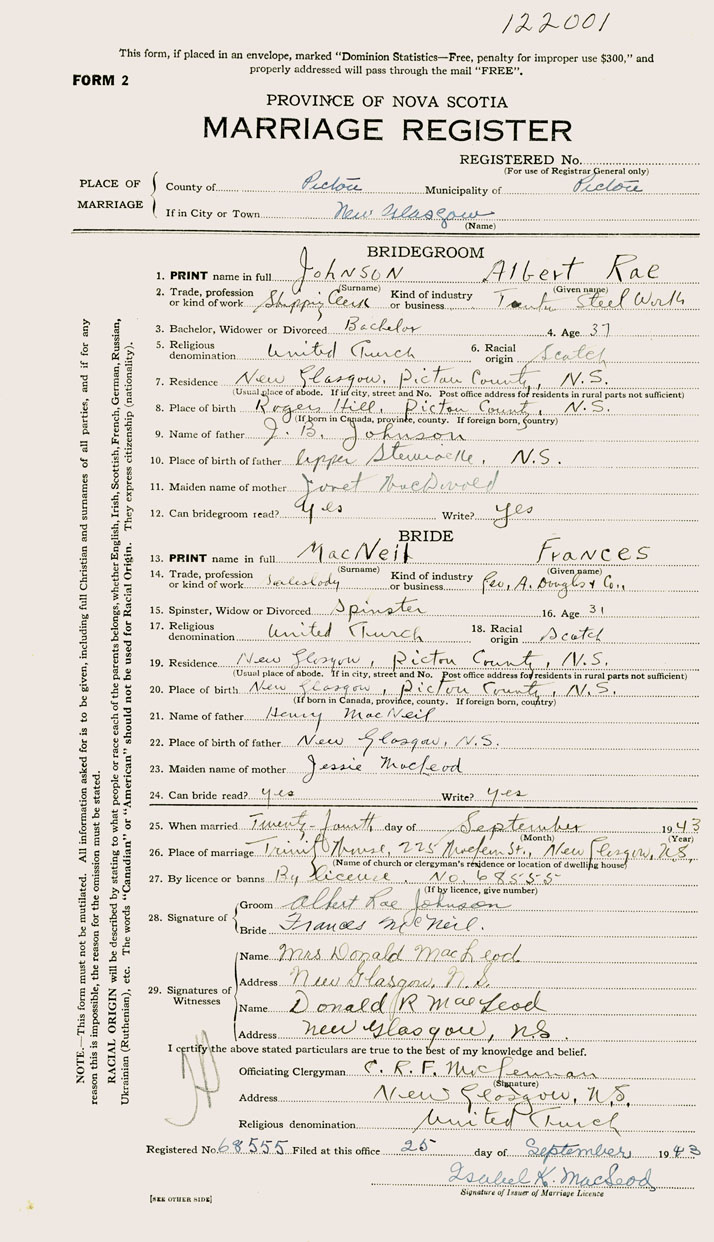 122001
This form, if placed in an envelope, marked "Dominion Statistics—Free, penalty for improper use $300," and
properly addressed will pass through the mail "FREE".
FORM 2
PROVINCE OF NOVA SCOTIA
MARRIAGE REGISTER
REGISTERED No.
(For use of Registrar General only)
PLACE OF MARRIAGE
County of Pictou Municipality of Pictou
If in City or Town New Glasgow
(Name)
BRIDEGROOM
1. PRINT name in full JOHNSON Albert Rae
(Surname) (Given name)
2. Trade, profession or kind of work Shipping Clerk Kind of industry or business Steel Work
3. Bachelor, Widower or Divorced Bachelor 4. Age 37
5. Religious denomination United Church 6. Racial origin Scotch
7. Residence New Glasgow, Pictou County, N.S.
(Usual place of abode. If in city, street and No. Post office address for residents in rural parts not sufficient)
8. Place of birth Rogers Hill, Pictou County, N.S.
(If born in Canada, province, county. If foreign born, country)
9. Name of father J. B. Johnson
10. Place of birth of father Upper Stewiacke, N.S.
11. Maiden name of mother Janet MacDonald
12. Can bridegroom read? yes Write? yes
BRIDE
13. PRINT name in full MacNeil FRANCES
(Surname) (Given name)
14. Trade, profession or kind of work Saleslady Kind of industry or business Geo. A. Douglas & Co.,
15. Spinster, Widow or Divorced Spinster 16. Age 31
17. Religious denomination United Church 18. Racial origin Scotch
19. Residence New Glasgow, Pictou County, N.S.
(Usual place of abode. If in city, street and No. Post office address for residents in rural parts not sufficient)
20. Place of birth New Glasgow, Pictou County, N.S.
(If born in Canada, province, county. If foreign born, country)
21. Name of father Henry MacNeil
22. Place of birth of father New Glasgow, N.S.
23. Maiden name of mother Jessie MacLeod
24. Can bride read? yes Write? yes
25. When married Twenty-fourth day of September 1943
(Month) (Year)
26. Place of marriage Trinity Manse, 225 St., New Glasgow, N.S.
(Name of church or clergyman's residence or location of dwelling house)
27. By licence or banns By licence, No. 68555
(If by licence, give number)
28. Signature of
Groom Albert Rae Johnson
Bride Frances McNeil.
29. Signatures of Witnesses
Name Mrs Donald MacLeod
Address New Glasgow, N.S.
Name Donald R MacLeod
Address New Glasgow, NS.
I certify the above stated particulars are true to the best of my knowledge and belief.
Officiating Clergyman C. R. F. McLennan
(Signature)
Address New Glasgow, N.S.
Religious denomination United Church
Registered No. 68555 Filed at this office 25 day of September 1943
Isabel K. MacLeod
Signature of Issuer of Marriage Licence
[SEE OTHER SIDE]
NOTE.—This form must not be mutilated. All information asked for is to be given, including full Christian and surnames of all parties, and if for any
reason this is impossible, the reason for the omission must be stated.
RACIAL ORIGIN will be described by stating to what people or race each of the parents belongs, whether English, Irish, Scottish, French, German, Russian,
Ukrainian (Ruthenian), etc. The words "Canadian" or "American" should not be used for Racial Origin. They express citizenship (nationality).